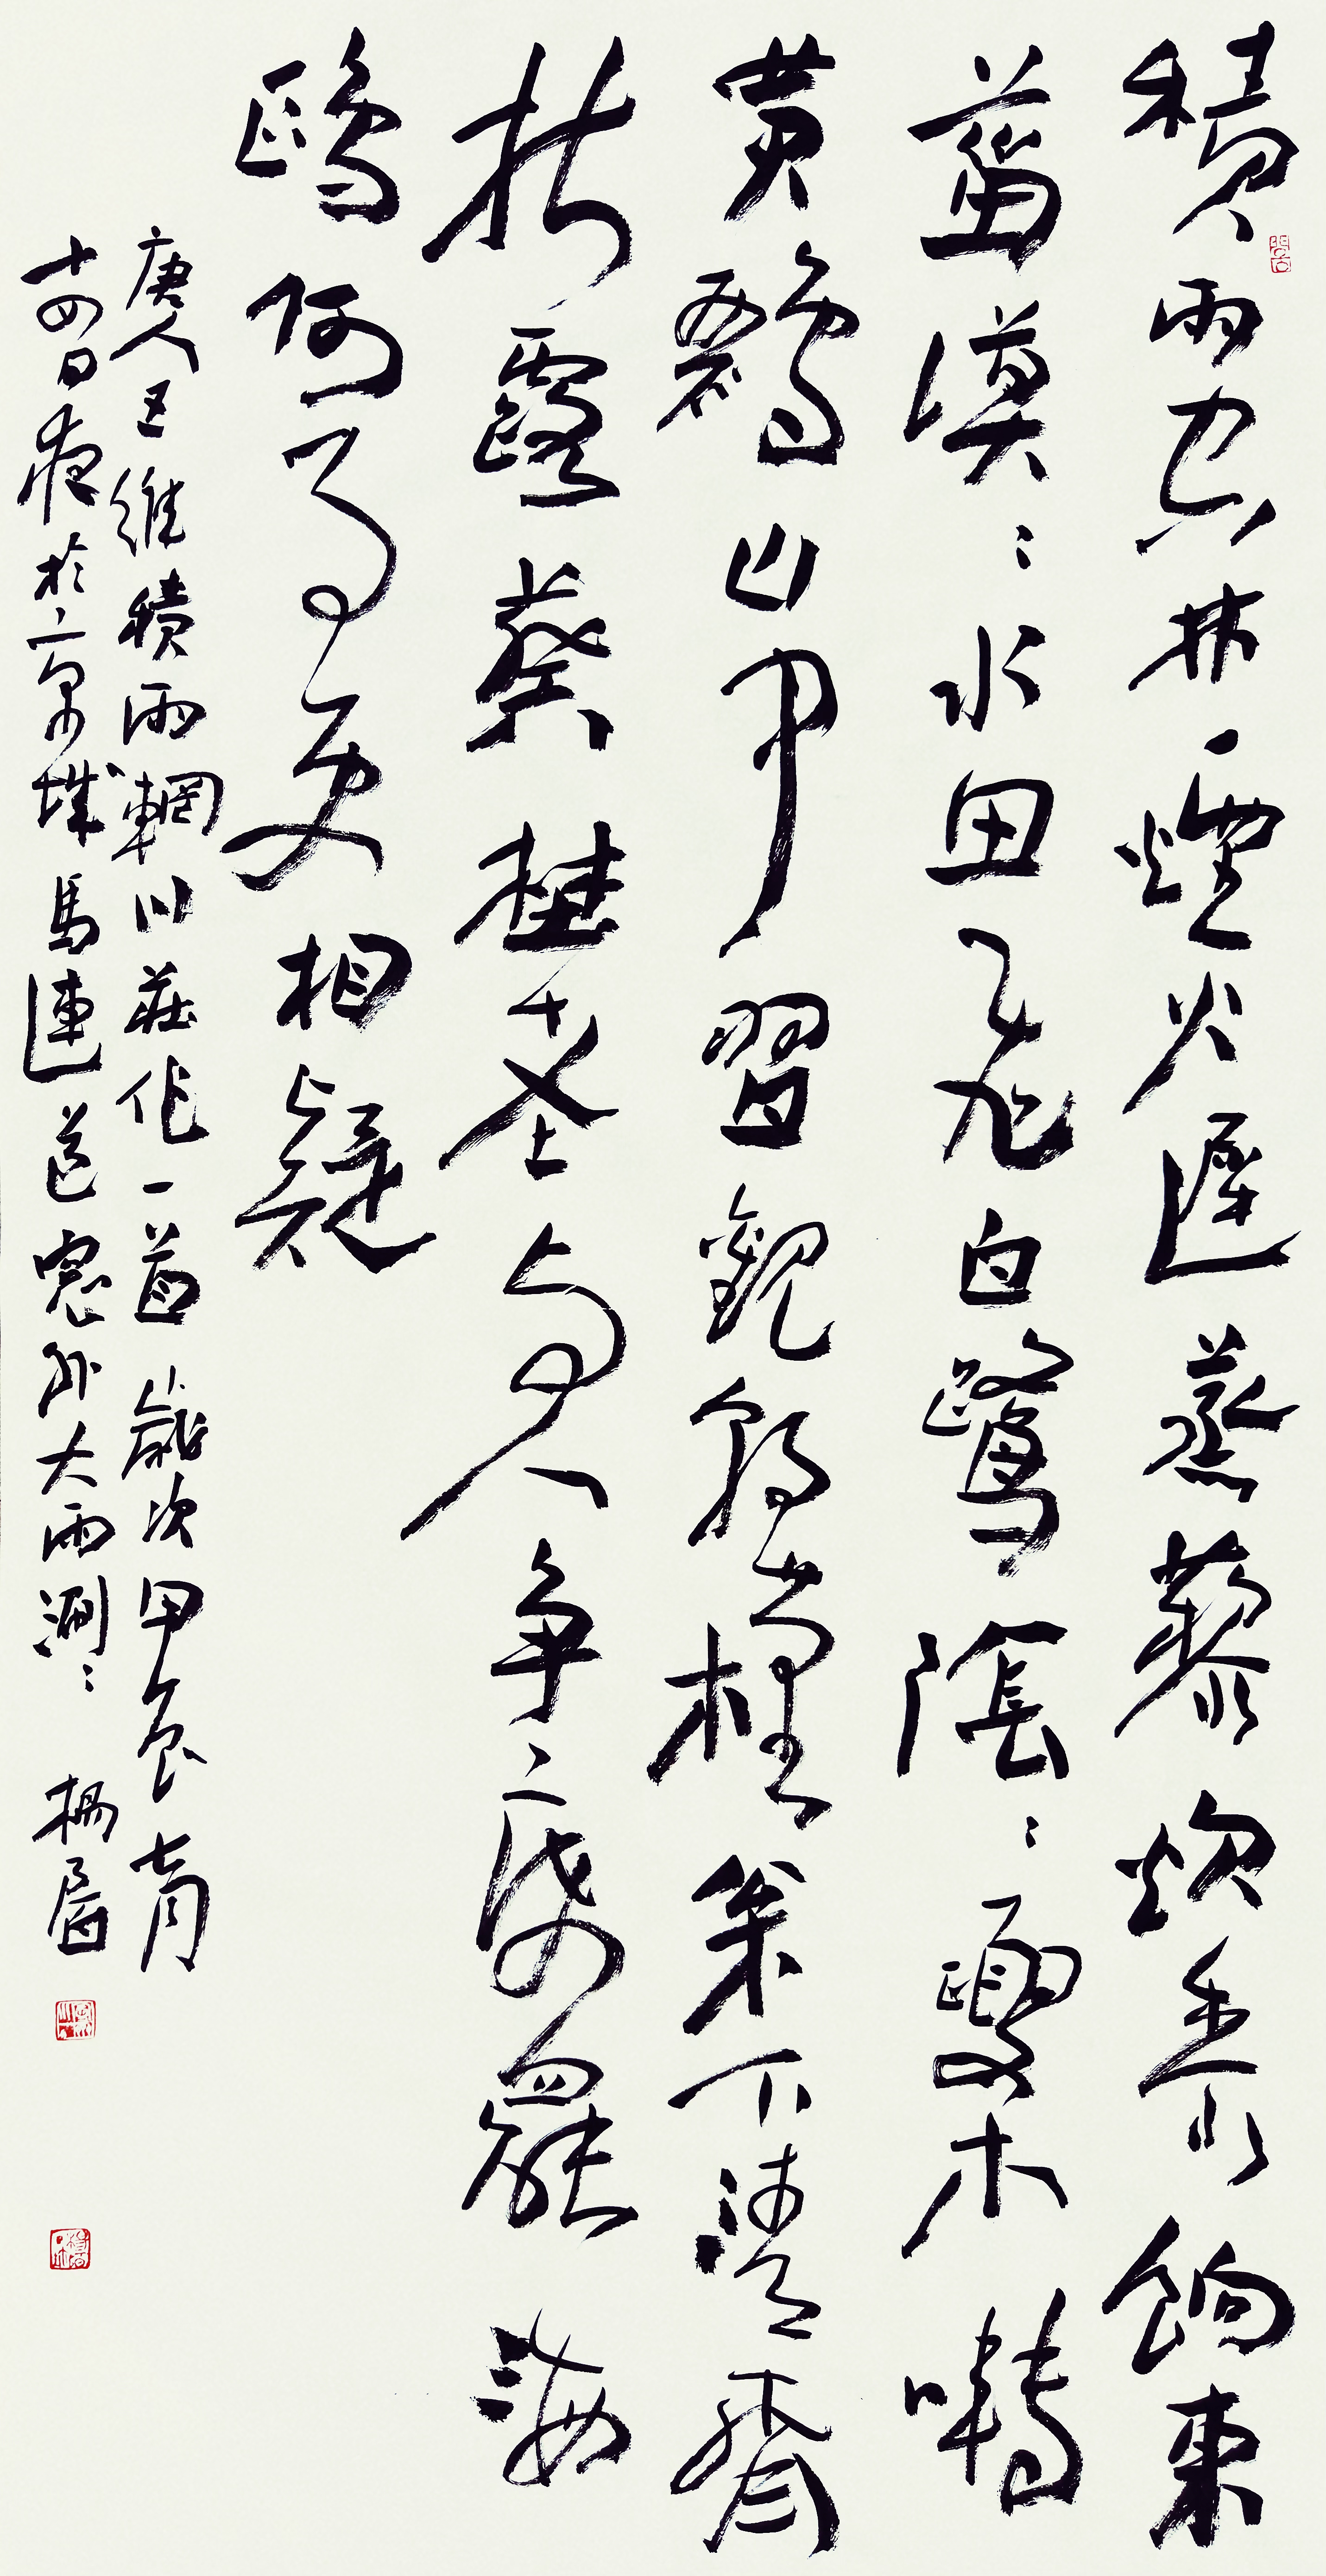 積雨空林煙火遲蒸藜炊黍餉東
菑漠々水田飛白鷺陰々夏木囀
黃鸝山中習觀朝槿枀下清齋
折露葵埜老與人爭席罷海
鷗何事更相疑
唐人王維積雨輞川莊作一首 歲次甲辰七月
十四日夜於京城馬連道窗外大雨涮々